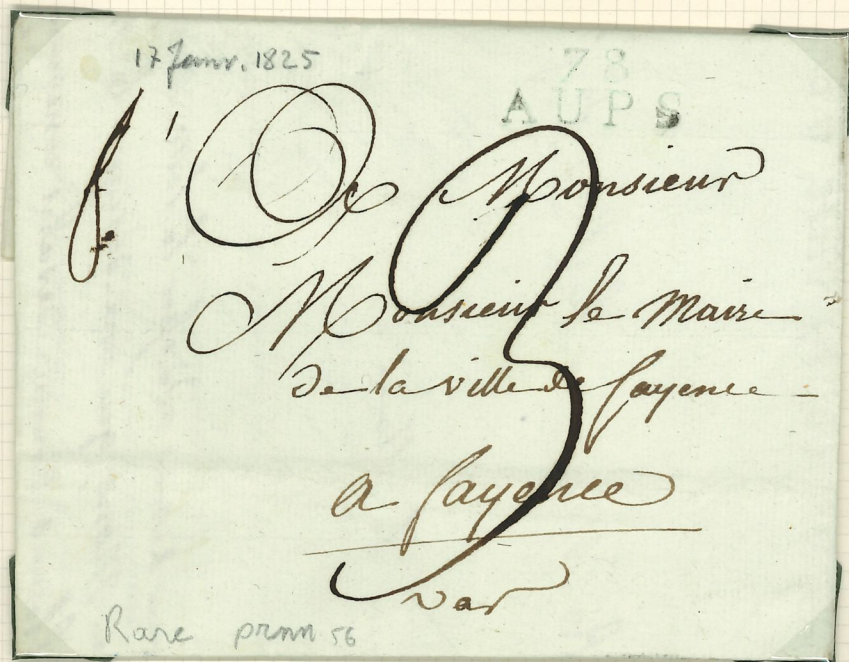 17 Janv. 1825
78
AUPS
3
A Monsieur
Monsieur le Maire
de la ville de fayence
a fayence
var
Rare prnn 56